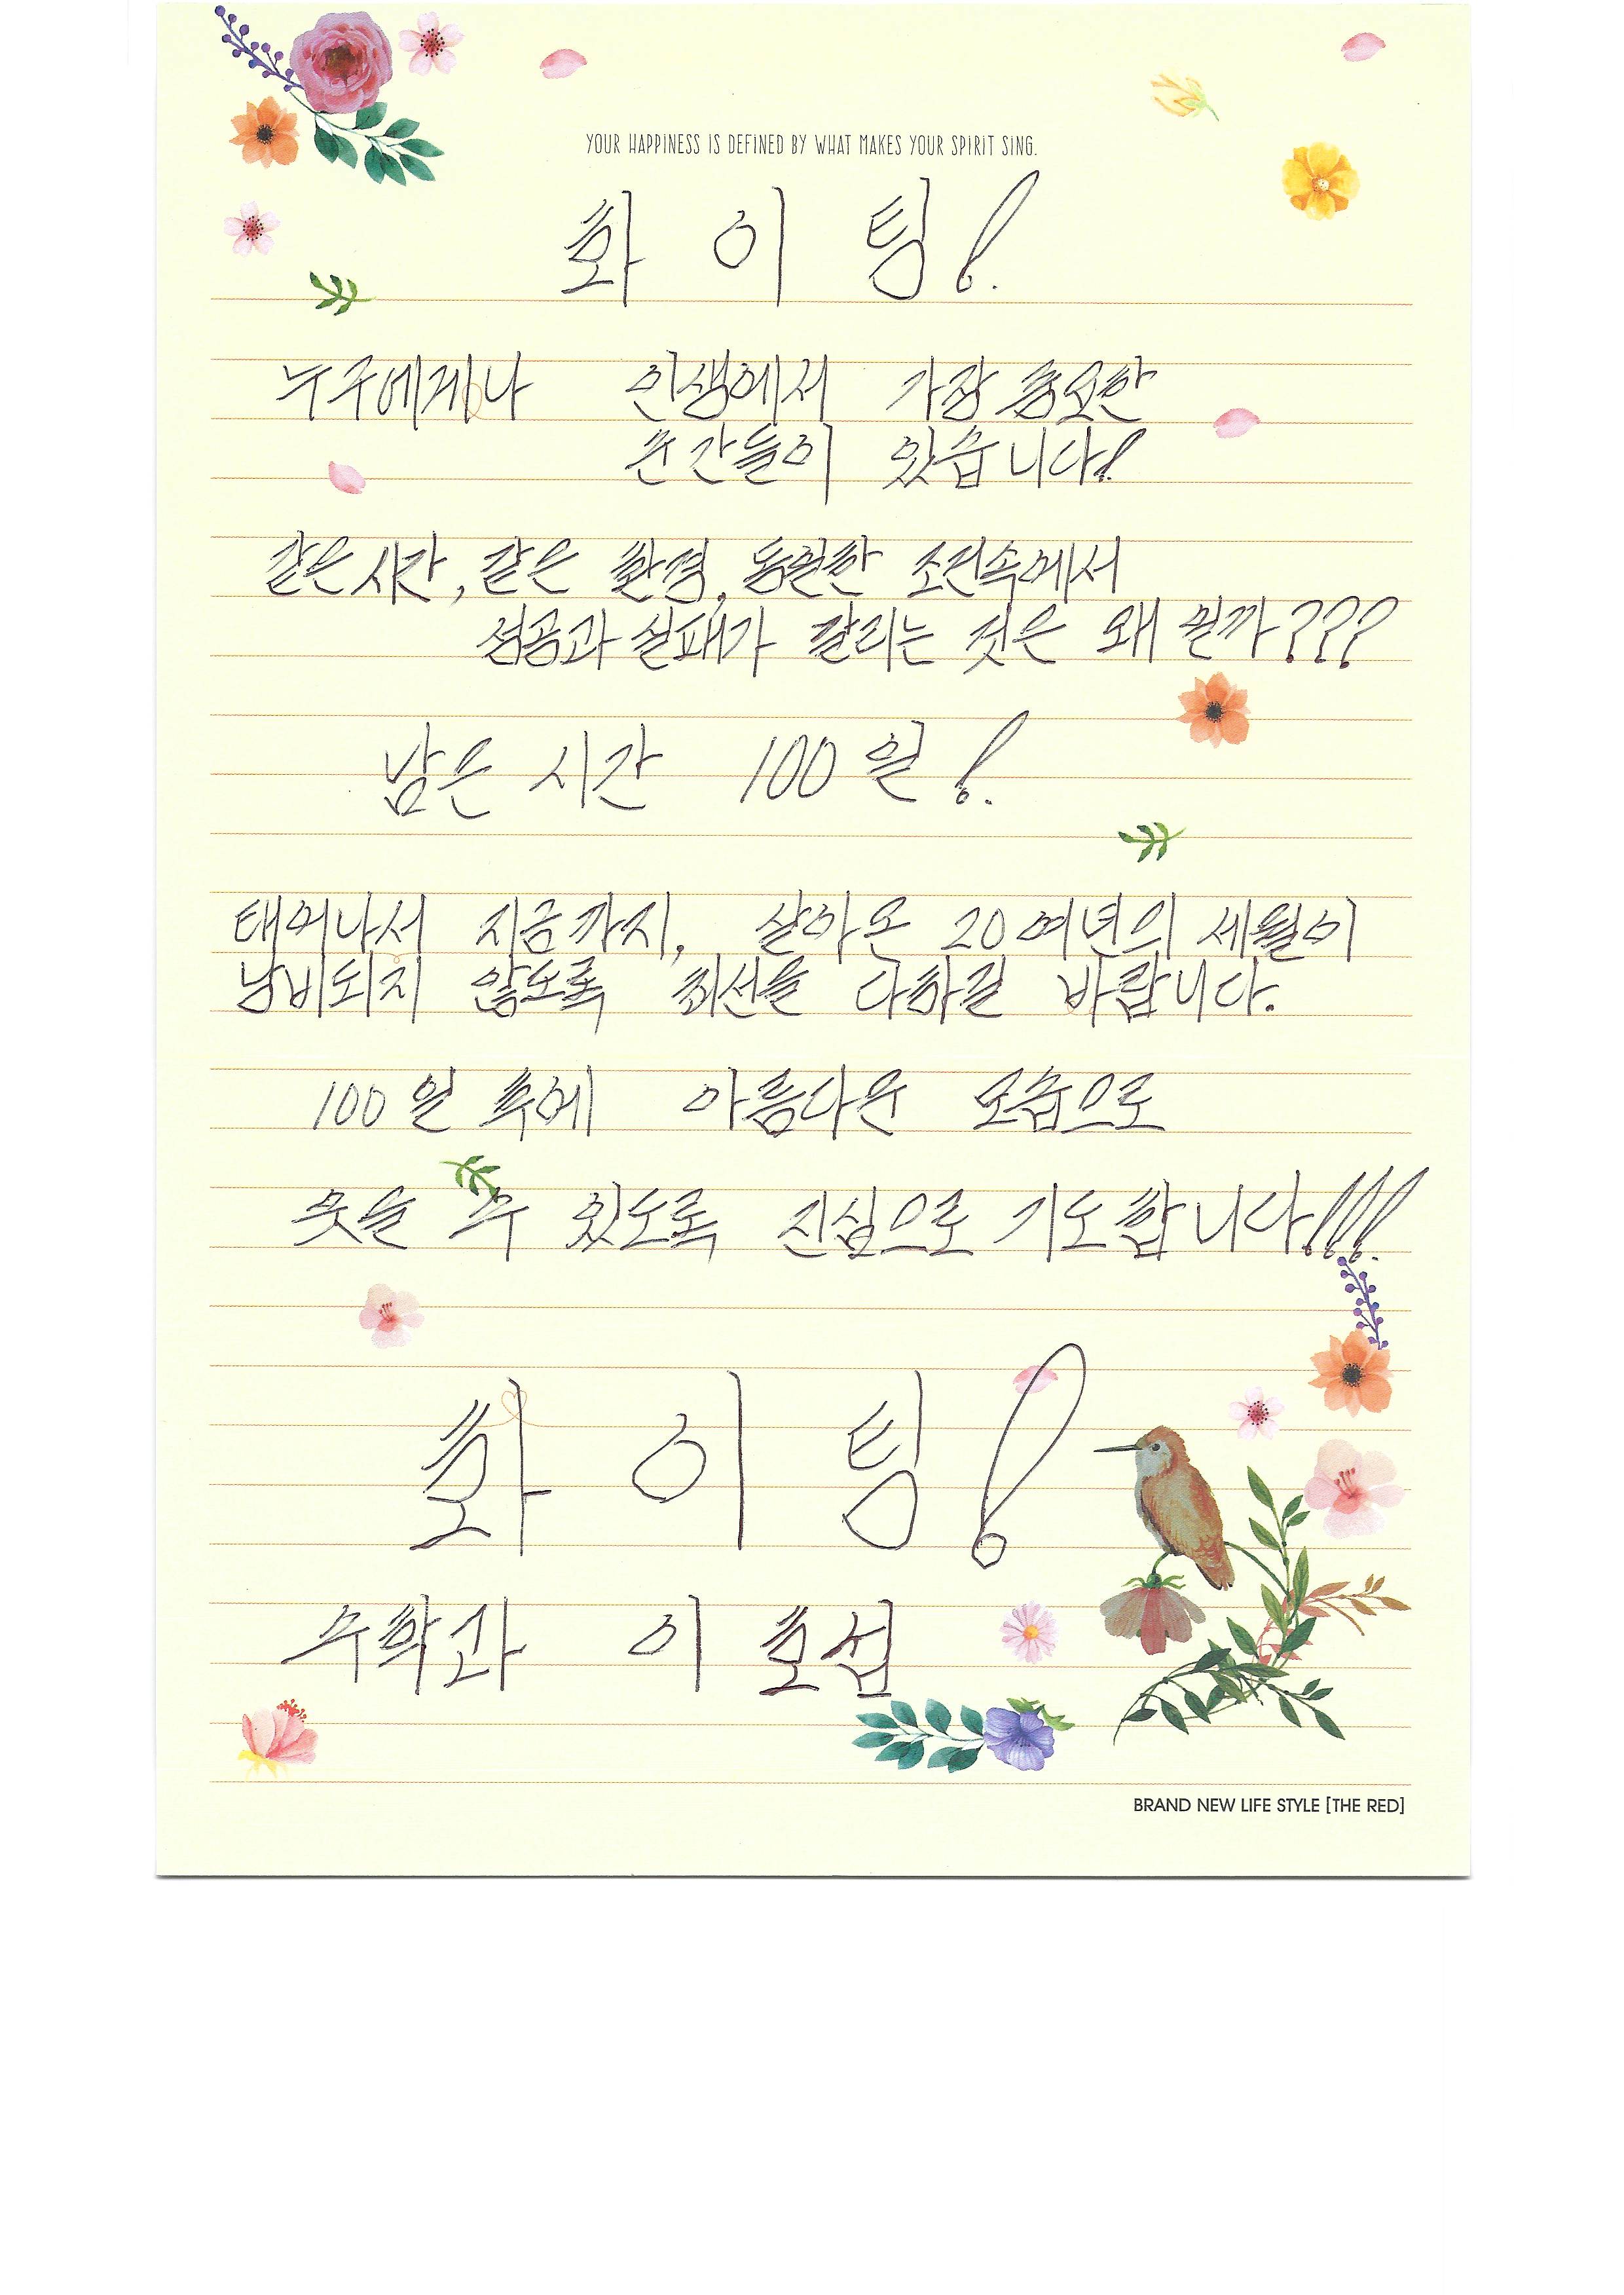 YOUR HAPPINESS IS DEFINED BY WHAT MAKES YOUR SPIRIT SING.
화 이 팅!
누구에게나 인생에서 가장 중요한
순간들이 있습니다!
같은 시간, 같은 환경, 동일한 조건속에서
성공과 실패가 갈리는 것은 왜 일까???
남은 시간 100일!
태어나서 지금까지, 살아온 20여년의 세월이
낭비되지 않도록 최선을 다하길 바랍니다.
100일 후에 아름다운 모습으로
웃을 수 있도록 진심으로 기도합니다!!!
화 이 팅!
수학과 이호섭
BRAND NEW LIFE STYLE [THE RED]